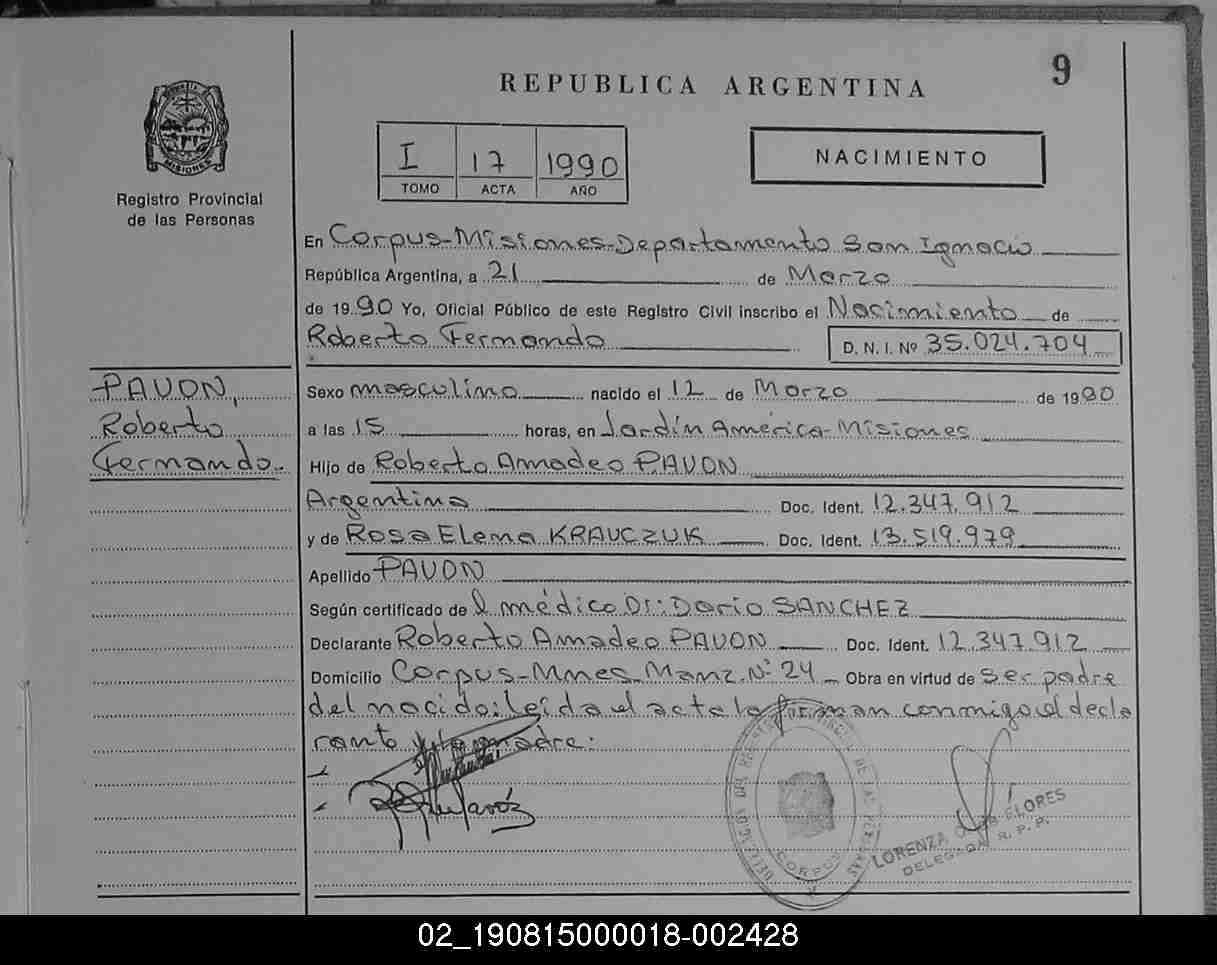 REPUBLICA ARGENTINA
9
MISIONES
Registro Provincial
de las Personas
I 17 1990
TOMO ACTA AÑO
NACIMIENTO
En Corpus-Misiones-Departamento San Ignacio
República Argentina, a 21 de Marzo
de 1990 Yo, Oficial Público de este Registro Civil inscribo el Nacimiento de
Roberto Fernando D.N.I. Nº 35.024.704
PAVON,
Roberto
Fernando.-
Sexo masculino nacido el 12 de Marzo de 1990
a las 15 horas, en Jardín América-Misiones
Hijo de Roberto Amadeo PAVON
Argentina Doc. Ident. 12.347.912
y de Rosa Elena KRAUCZUK Doc. Ident. 13.519.979
Apellido PAVON
Según certificado del médico Dr: Dario SANCHEZ
Declarante Roberto Amadeo PAVON Doc. Ident. 12.347.912
Domicilio Corpus-Mnes-Manz.Nº 24 Obra en virtud de ser padre
del nacido: leída el acta la firman conmigo el decla
rante y la madre:
CORPUS
LORENZA FLORES
DELEGADA R.P.P.
02_190815000018-002428